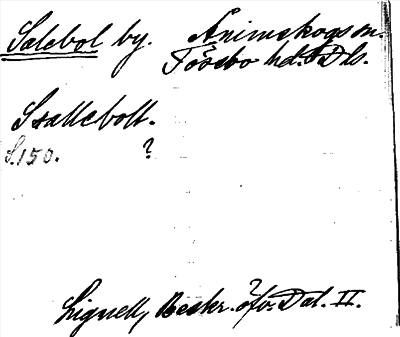 Salebol by. Animskogs sn.
Tössbo hd. Dls.
Stallebolt.
S.150. ?
Lignell, Beskr. öfv. Dal. II.